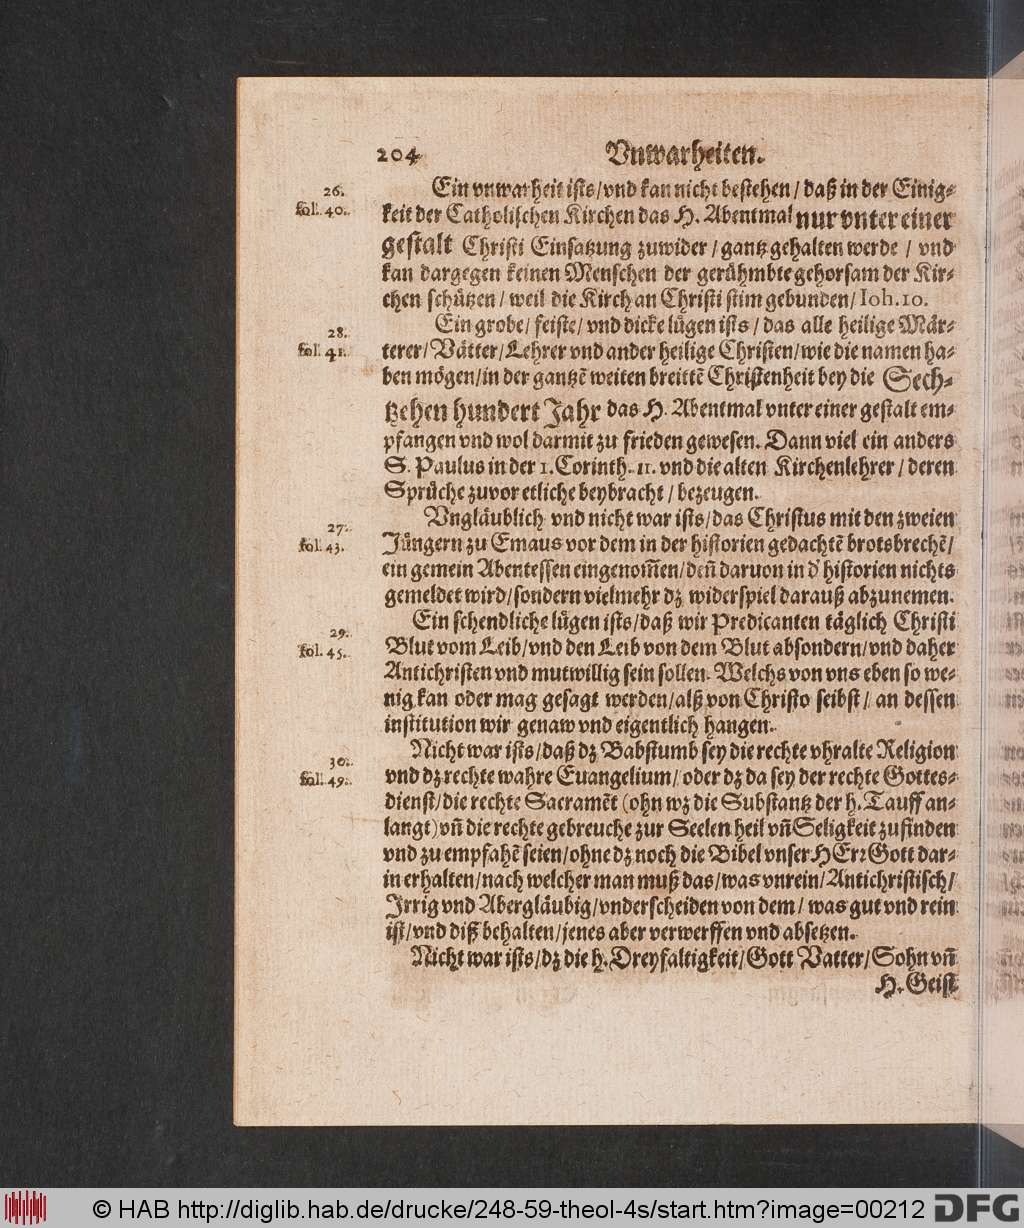 204 Vnwarheiten.
26. Ein vnwarheit ists/vnd kan nicht bestehen/ daß in der Einig-
fol. 40. keit der Catholischen Kirchen das H. Abentmal nur vnter einer
gestalt Christi Einsatzung zuwider/ gantz gehalten werde / vnd
kan dargegen keinen Menschen der gerühmbte gehorsam der Kir-
chen schützen/ weil die Kirch an Christi stim gebunden/ Ioh. 10.
28. Ein grobe/ feiste/ vnd dicke lügen ists / das alle heilige Mär-
fol. 41. terer/ Vätter/ Lehrer vnd ander heilige Christen/wie die namen ha-
ben mögen/in der gantzẽ weiten breittẽ Christenheit bey die Sech-
tzehen hundert Jahr das H. Abentmal vnter einer gestalt em-
pfangen vnd wol darmit zu frieden gewesen. Dann viel ein anders
S. Paulus in der 1. Corinth. 11. vnd die alten Kirchenlehrer / deren
Sprüche zuvor etliche beybracht / bezeugen.
27. Vngläublich vnd nicht war ists/das Christus mit den zweien
fol. 43. Jüngern zu Emaus vor dem in der historien gedachtẽ brotsbrechẽ/
ein gemein Abentessen eingenom̃en/den̄ daruon in d' historien nichts
gemeldet wird/sondern vielmehr dz widerspiel darauß abzunemen.
29. Ein schendliche lügen ists/daß wir Predicanten täglich Christi
fol. 45. Blut vom Leib/vnd den Leib von dem Blut absondern/vnd daher
Antichristen vnd mutwillig sein sollen. Welchs von vns eben so we-
nig kan oder mag gesagt werden/alß von Christo selbst/ an dessen
institution wir genaw vnd eigentlich hangen.
30. Nicht war ists/daß dz Babstumb sey die rechte vhralte Religion
fol. 49. vnd dz rechte wahre Euangelium/ oder dz da sey der rechte Gottes-
dienst/die rechte Sacramẽt (ohn wz die Substantz der h. Tauff an-
langt) vn̄ die rechte gebreuche zur Seelen heil vn̄ Seligkeit zu finden
vnd zu empfahẽ seien/ohne dz noch die Bibel vnser HErꝛ Gott dar-
in erhalten/nach welcher man muß das/was vnrein/Antichristisch/
Irrig vnd Abergläubig/vnderscheiden von dem/ was gut vnd rein
ist/vnd diß behalten/jenes aber verwerffen vnd absetzen.
Nicht war ists/dz die h. Dreyfaltigkeit/Gott Vatter/Sohn vn̄
H. Geist
© HAB http://diglib.hab.de/drucke/248-59-theol-4s/start.htm?image=00212 DFG